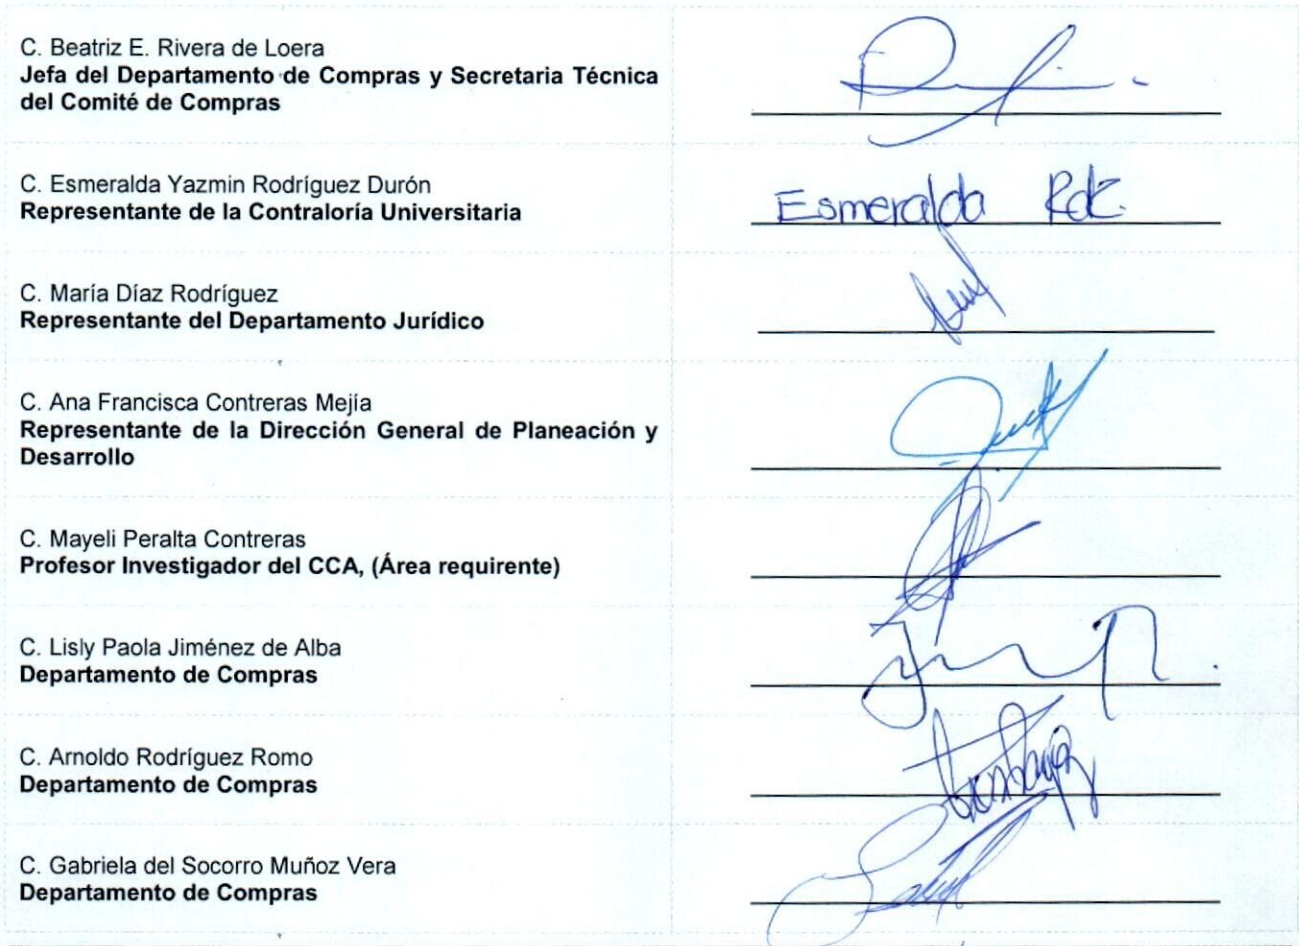 C. Beatriz E. Rivera de Loera
Jefa del Departamento de Compras y Secretaria Técnica
del Comité de Compras
C. Esmeralda Yazmin Rodríguez Durón
Esmeralda Rdz.
Representante de la Contraloría Universitaria
C. María Díaz Rodríguez
Representante del Departamento Jurídico
C. Ana Francisca Contreras Mejía
Representante de la Dirección General de Planeación y
Desarrollo
C. Mayeli Peralta Contreras
Profesor Investigador del CCA, (Área requirente)
C. Lisly Paola Jiménez de Alba
Departamento de Compras
C. Arnoldo Rodríguez Romo
Departamento de Compras
C. Gabriela del Socorro Muñoz Vera
Departamento de Compras